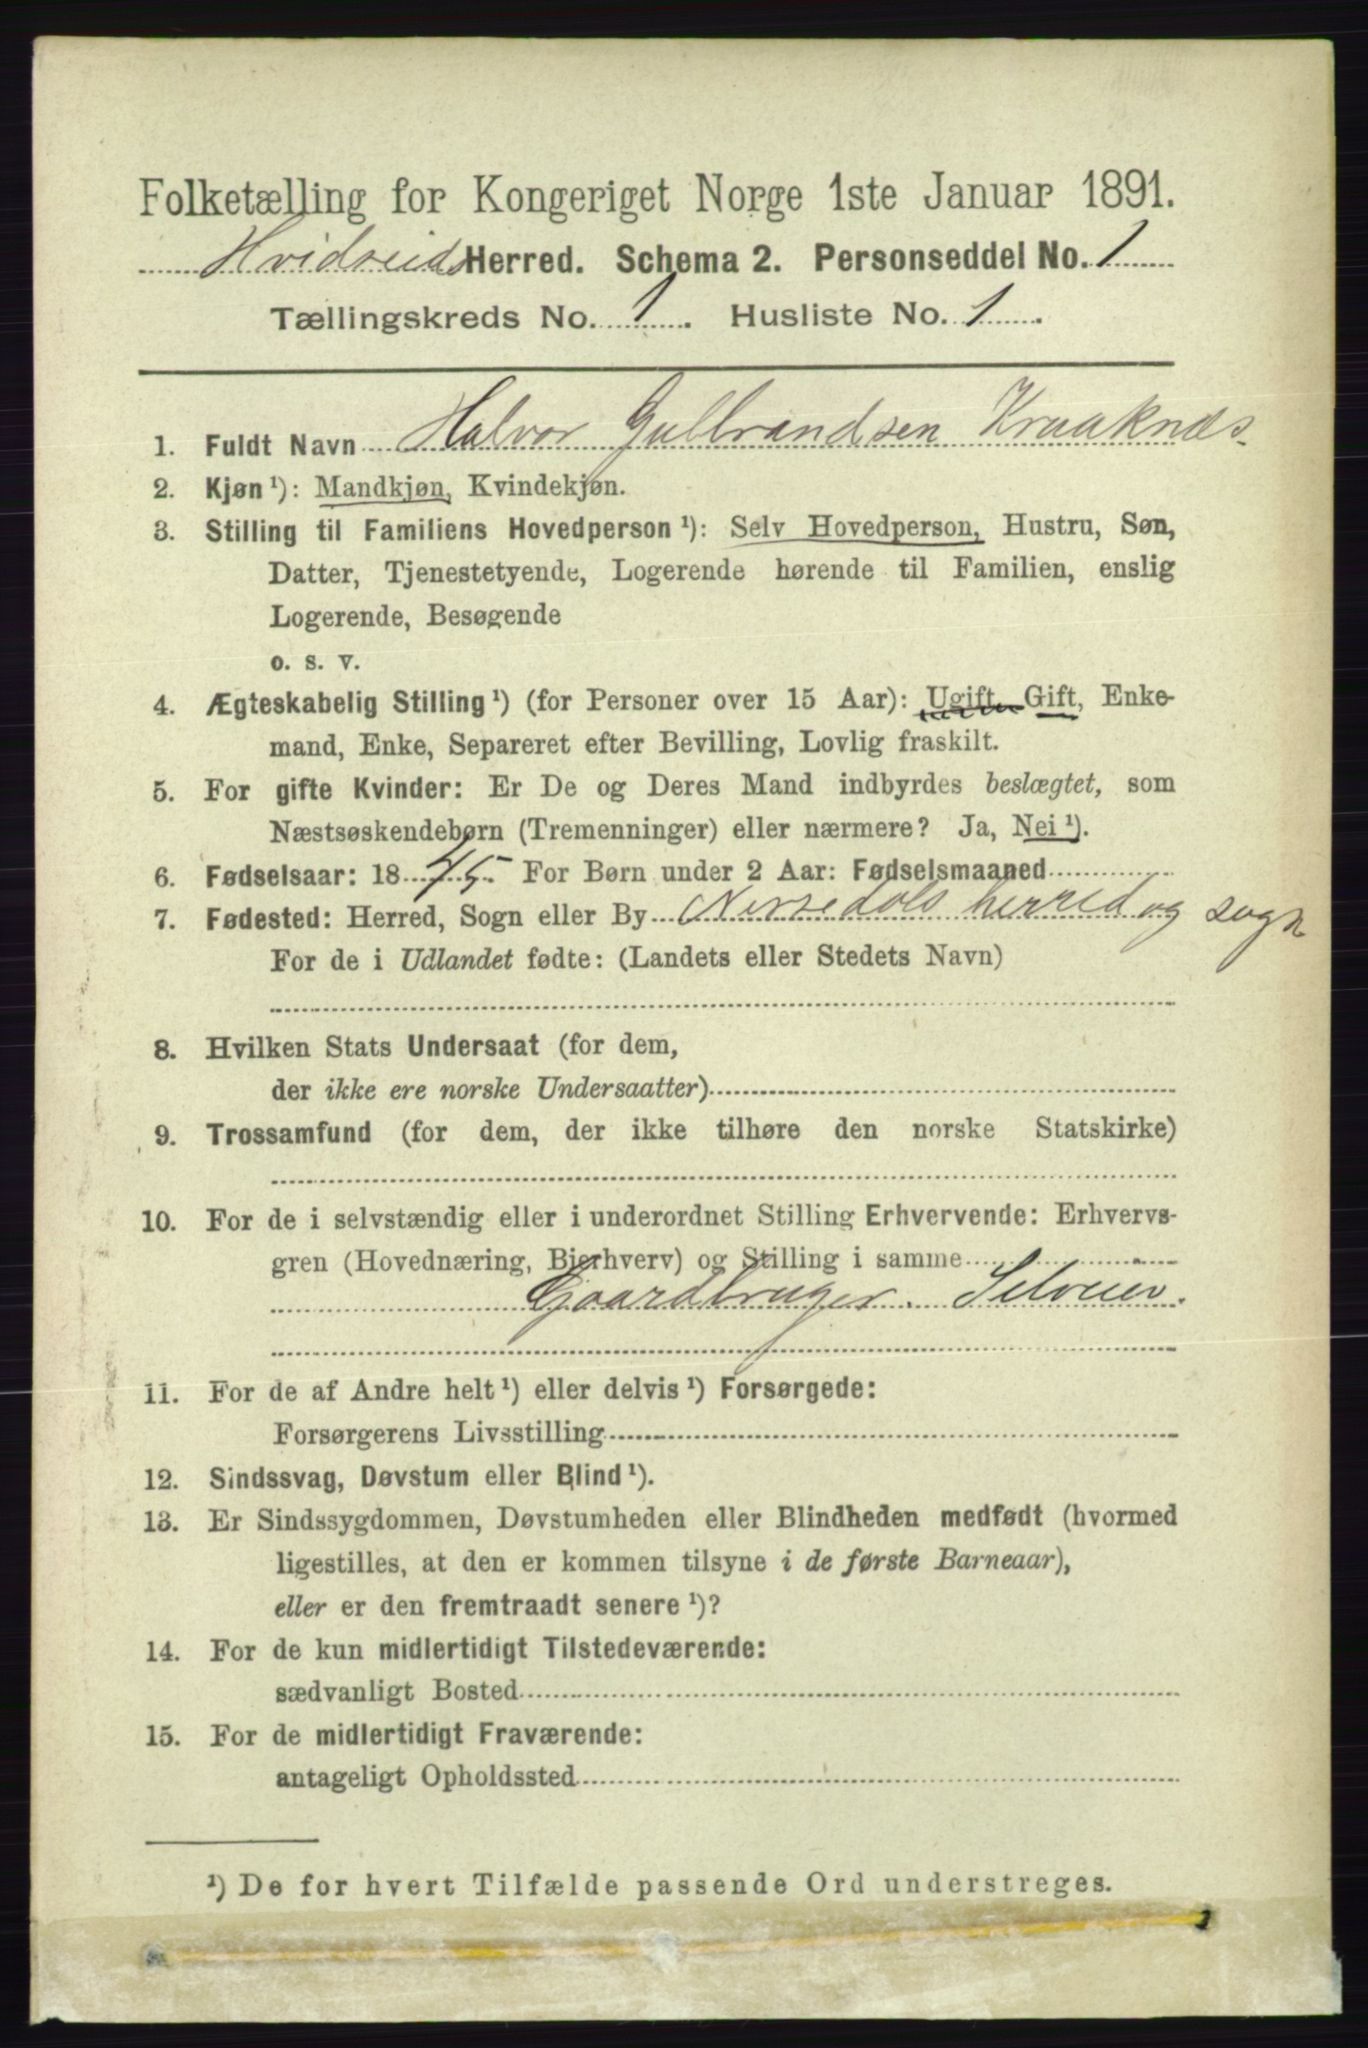 Folketælling for Kongeriget Norge 1ste Januar 1891.
Hvidseids Herred. Schema 2. Personseddel No. 1
Tællingskreds No. 1. Husliste No. 1.
1. Fuldt Navn Halvor Gulbrandsen Kraaknæs.
2. Kjøn ¹): Mandkjøn, Kvindekjøn.
3. Stilling til Familiens Hovedperson ¹): Selv Hovedperson, Hustru, Søn,
Datter, Tjenestetyende, Logerende hørende til Familien, enslig
Logerende, Besøgende
o. s. v.
4. Ægteskabelig Stilling ¹) (for Personer over 15 Aar): Ugift, Gift, Enke-
mand, Enke, Separeret efter Bevilling, Lovlig fraskilt.
5. For gifte Kvinder: Er De og Deres Mand indbyrdes beslægtet, som
Næstsøskendebørn (Tremenninger) eller nærmere? Ja, Nei ¹).
6. Fødselsaar: 1845. For Børn under 2 Aar: Fødselsmaaned
7. Fødested: Herred, Sogn eller By Nissedals herred og sogn
For de i Udlandet fødte: (Landets eller Stedets Navn)
8. Hvilken Stats Undersaat (for dem,
der ikke ere norske Undersaatter)
9. Trossamfund (for dem, der ikke tilhøre den norske Statskirke)
10. For de i selvstændig eller i underordnet Stilling Erhvervende: Erhvervs-
gren (Hovednæring, Bierhverv) og Stilling i samme
Gaardbruger. Selveier.
11. For de af Andre helt ¹) eller delvis ¹) Forsørgede:
Forsørgerens Livsstilling
12. Sindssvag, Døvstum eller Blind ¹).
13. Er Sindssygdommen, Døvstumheden eller Blindheden medfødt (hvormed
ligestilles, at den er kommen tilsyne i de første Barneaar),
eller er den fremtraadt senere ¹)?
14. For de kun midlertidigt Tilstedeværende:
sædvanligt Bosted
15. For de midlertidigt Fraværende:
antageligt Opholdssted
¹) De for hvert Tilfælde passende Ord understreges.